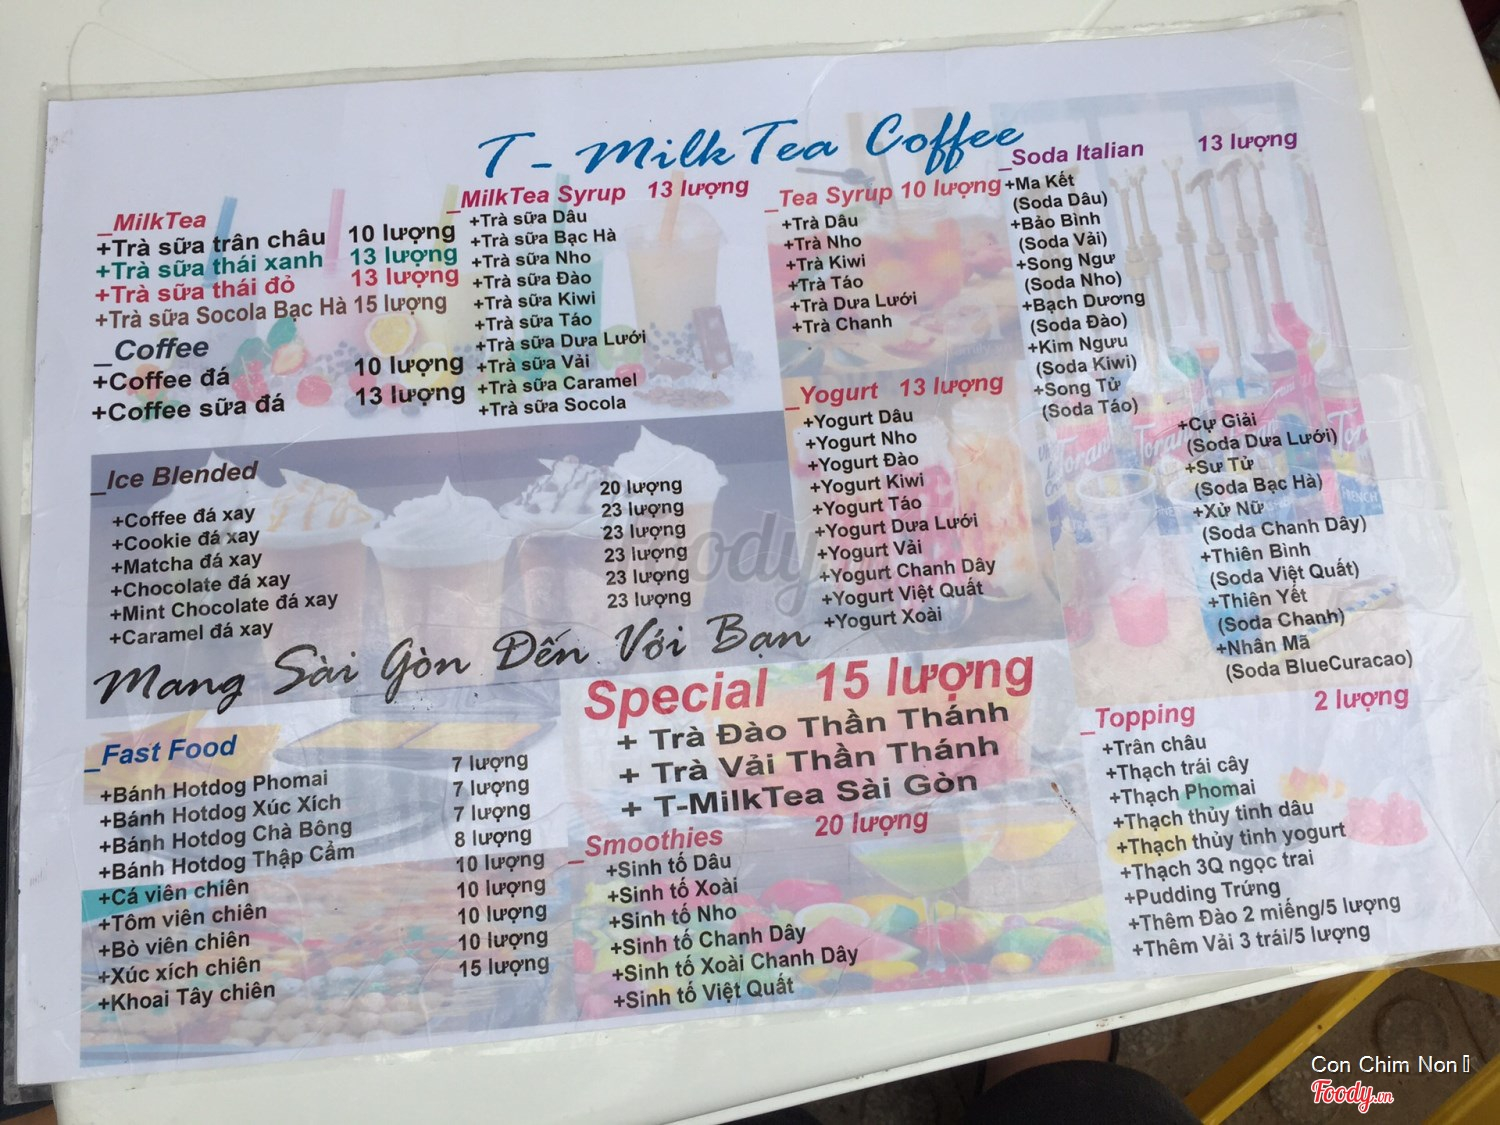 T - MilkTea Coffee
_MilkTea
+Trà sữa trân châu 10 lượng
+Trà sữa thái xanh 13 lượng
+Trà sữa thái đỏ 13 lượng
+Trà sữa Socola Bạc Hà 15 lượng
_Coffee
+Coffee đá 10 lượng
+Coffee sữa đá 13 lượng
_MilkTea Syrup 13 lượng
+Trà sữa Dâu
+Trà sữa Bạc Hà
+Trà sữa Nho
+Trà sữa Đào
+Trà sữa Kiwi
+Trà sữa Táo
+Trà sữa Dưa Lưới
+Trà sữa Vải
+Trà sữa Caramel
+Trà sữa Socola
_Tea Syrup 10 lượng
+Trà Dâu
+Trà Nho
+Trà Kiwi
+Trà Táo
+Trà Dưa Lưới
+Trà Chanh
_Yogurt 13 lượng
+Yogurt Dâu
+Yogurt Nho
+Yogurt Đào
+Yogurt Kiwi
+Yogurt Táo
+Yogurt Dưa Lưới
+Yogurt Vải
+Yogurt Chanh Dây
+Yogurt Việt Quất
+Yogurt Xoài
_Soda Italian 13 lượng
+Ma Kết
(Soda Dâu)
+Bảo Bình
(Soda Vải)
+Song Ngư
(Soda Nho)
+Bạch Dương
(Soda Đào)
+Kim Ngưu
(Soda Kiwi)
+Song Tử
(Soda Táo)
+Cự Giải
(Soda Dưa Lưới)
+Sư Tử
(Soda Bạc Hà)
+Xử Nữ
(Soda Chanh Dây)
+Thiên Bình
(Soda Việt Quất)
+Thiên Yết
(Soda Chanh)
+Nhân Mã
(Soda BlueCuracao)
_Ice Blended
+Coffee đá xay 20 lượng
+Cookie đá xay 23 lượng
+Matcha đá xay 23 lượng
+Chocolate đá xay 23 lượng
+Mint Chocolate đá xay 23 lượng
+Caramel đá xay 23 lượng
Mang Sài Gòn Đến Với Bạn
_Fast Food
+Bánh Hotdog Phomai 7 lượng
+Bánh Hotdog Xúc Xích 7 lượng
+Bánh Hotdog Chà Bông 7 lượng
+Bánh Hotdog Thập Cẩm 8 lượng
+Cá viên chiên 10 lượng
+Tôm viên chiên 10 lượng
+Bò viên chiên 10 lượng
+Xúc xích chiên 10 lượng
+Khoai Tây chiên 15 lượng
Special 15 lượng
+ Trà Đào Thần Thánh
+ Trà Vải Thần Thánh
+ T-MilkTea Sài Gòn
_Smoothies 20 lượng
+Sinh tố Dâu
+Sinh tố Xoài
+Sinh tố Nho
+Sinh tố Chanh Dây
+Sinh tố Xoài Chanh Dây
+Sinh tố Việt Quất
_Topping 2 lượng
+Trân châu
+Thạch trái cây
+Thạch Phomai
+Thạch thủy tinh dâu
+Thạch thủy tinh yogurt
+Thạch 3Q ngọc trai
+Pudding Trứng
+Thêm Đào 2 miếng/5 lượng
+Thêm Vải 3 trái/5 lượng
Con Chim Non
Foody.vn